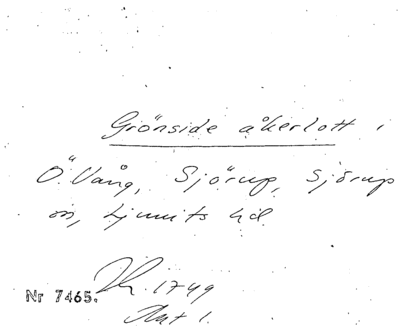 Grönside åkerlott i
Ö. Vång, Sjörup, Sjörup
sn, Ljunits hd.
Nr 7465. 1749
Akt 1.